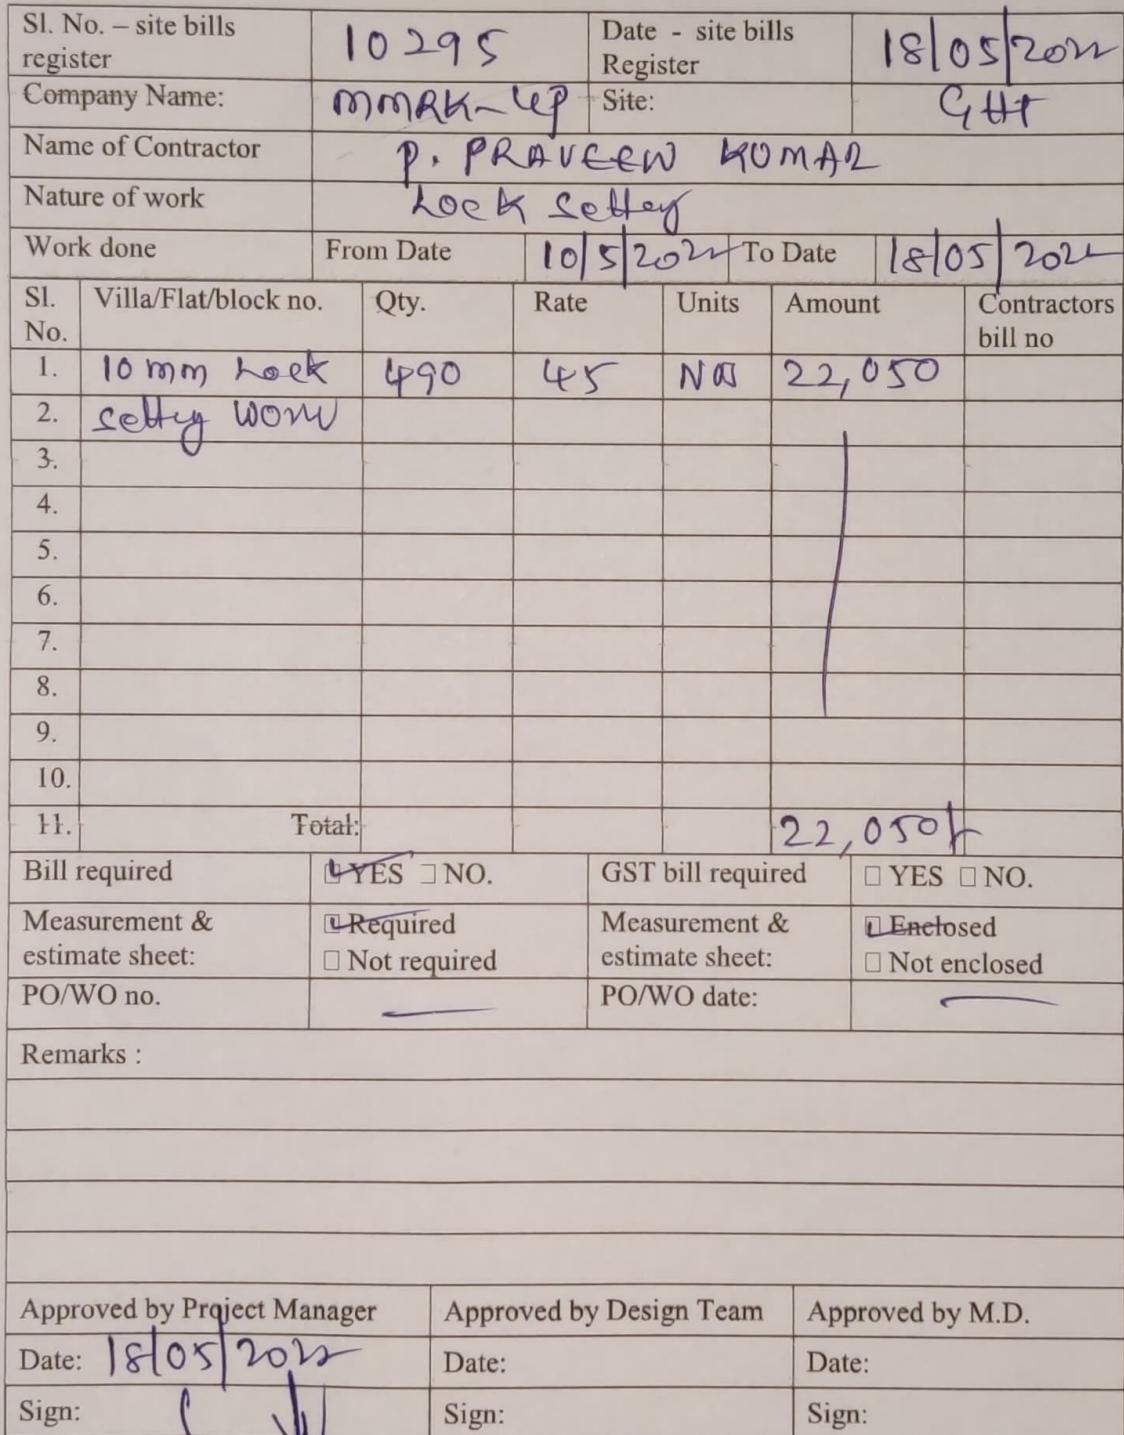 Sl. No. – site bills register 10295 Date - site bills Register 18/05/2022
Company Name: MMRK-LLP Site: GHT
Name of Contractor P. PRAVEEN KUMAR
Nature of work
Work done From Date 10/5/2022 To Date 18/05/2022
Sl. No. Villa/Flat/block no. Qty. Rate Units Amount Contractors bill no
1. 10 mm 490 45 Nos 22,050
2.
3.
4.
5.
6.
7.
8.
9.
10.
11. Total: 22,050/-
Bill required YES NO. GST bill required YES NO.
Measurement & estimate sheet: Required Measurement & estimate sheet: Enclosed
Not required Not enclosed
PO/WO no. — PO/WO date: —
Remarks :
Approved by Project Manager Approved by Design Team Approved by M.D.
Date: 18/05/2022 Date: Date:
Sign: Sign: Sign: